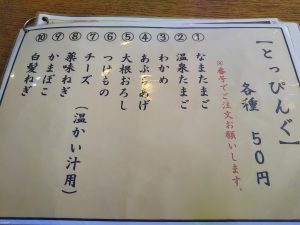 【とっぴんぐ】
各種 50円
※番号でご注文お願いします。
① なまたまご
② 温泉たまご
③ わかめ
④ あぶらあげ
⑤ 大根おろし
⑥ つけもの
⑦ チーズ
⑧ 薬味ねぎ(温かい汁用)
⑨ かまぼこ
⑩ 白髪ねぎ